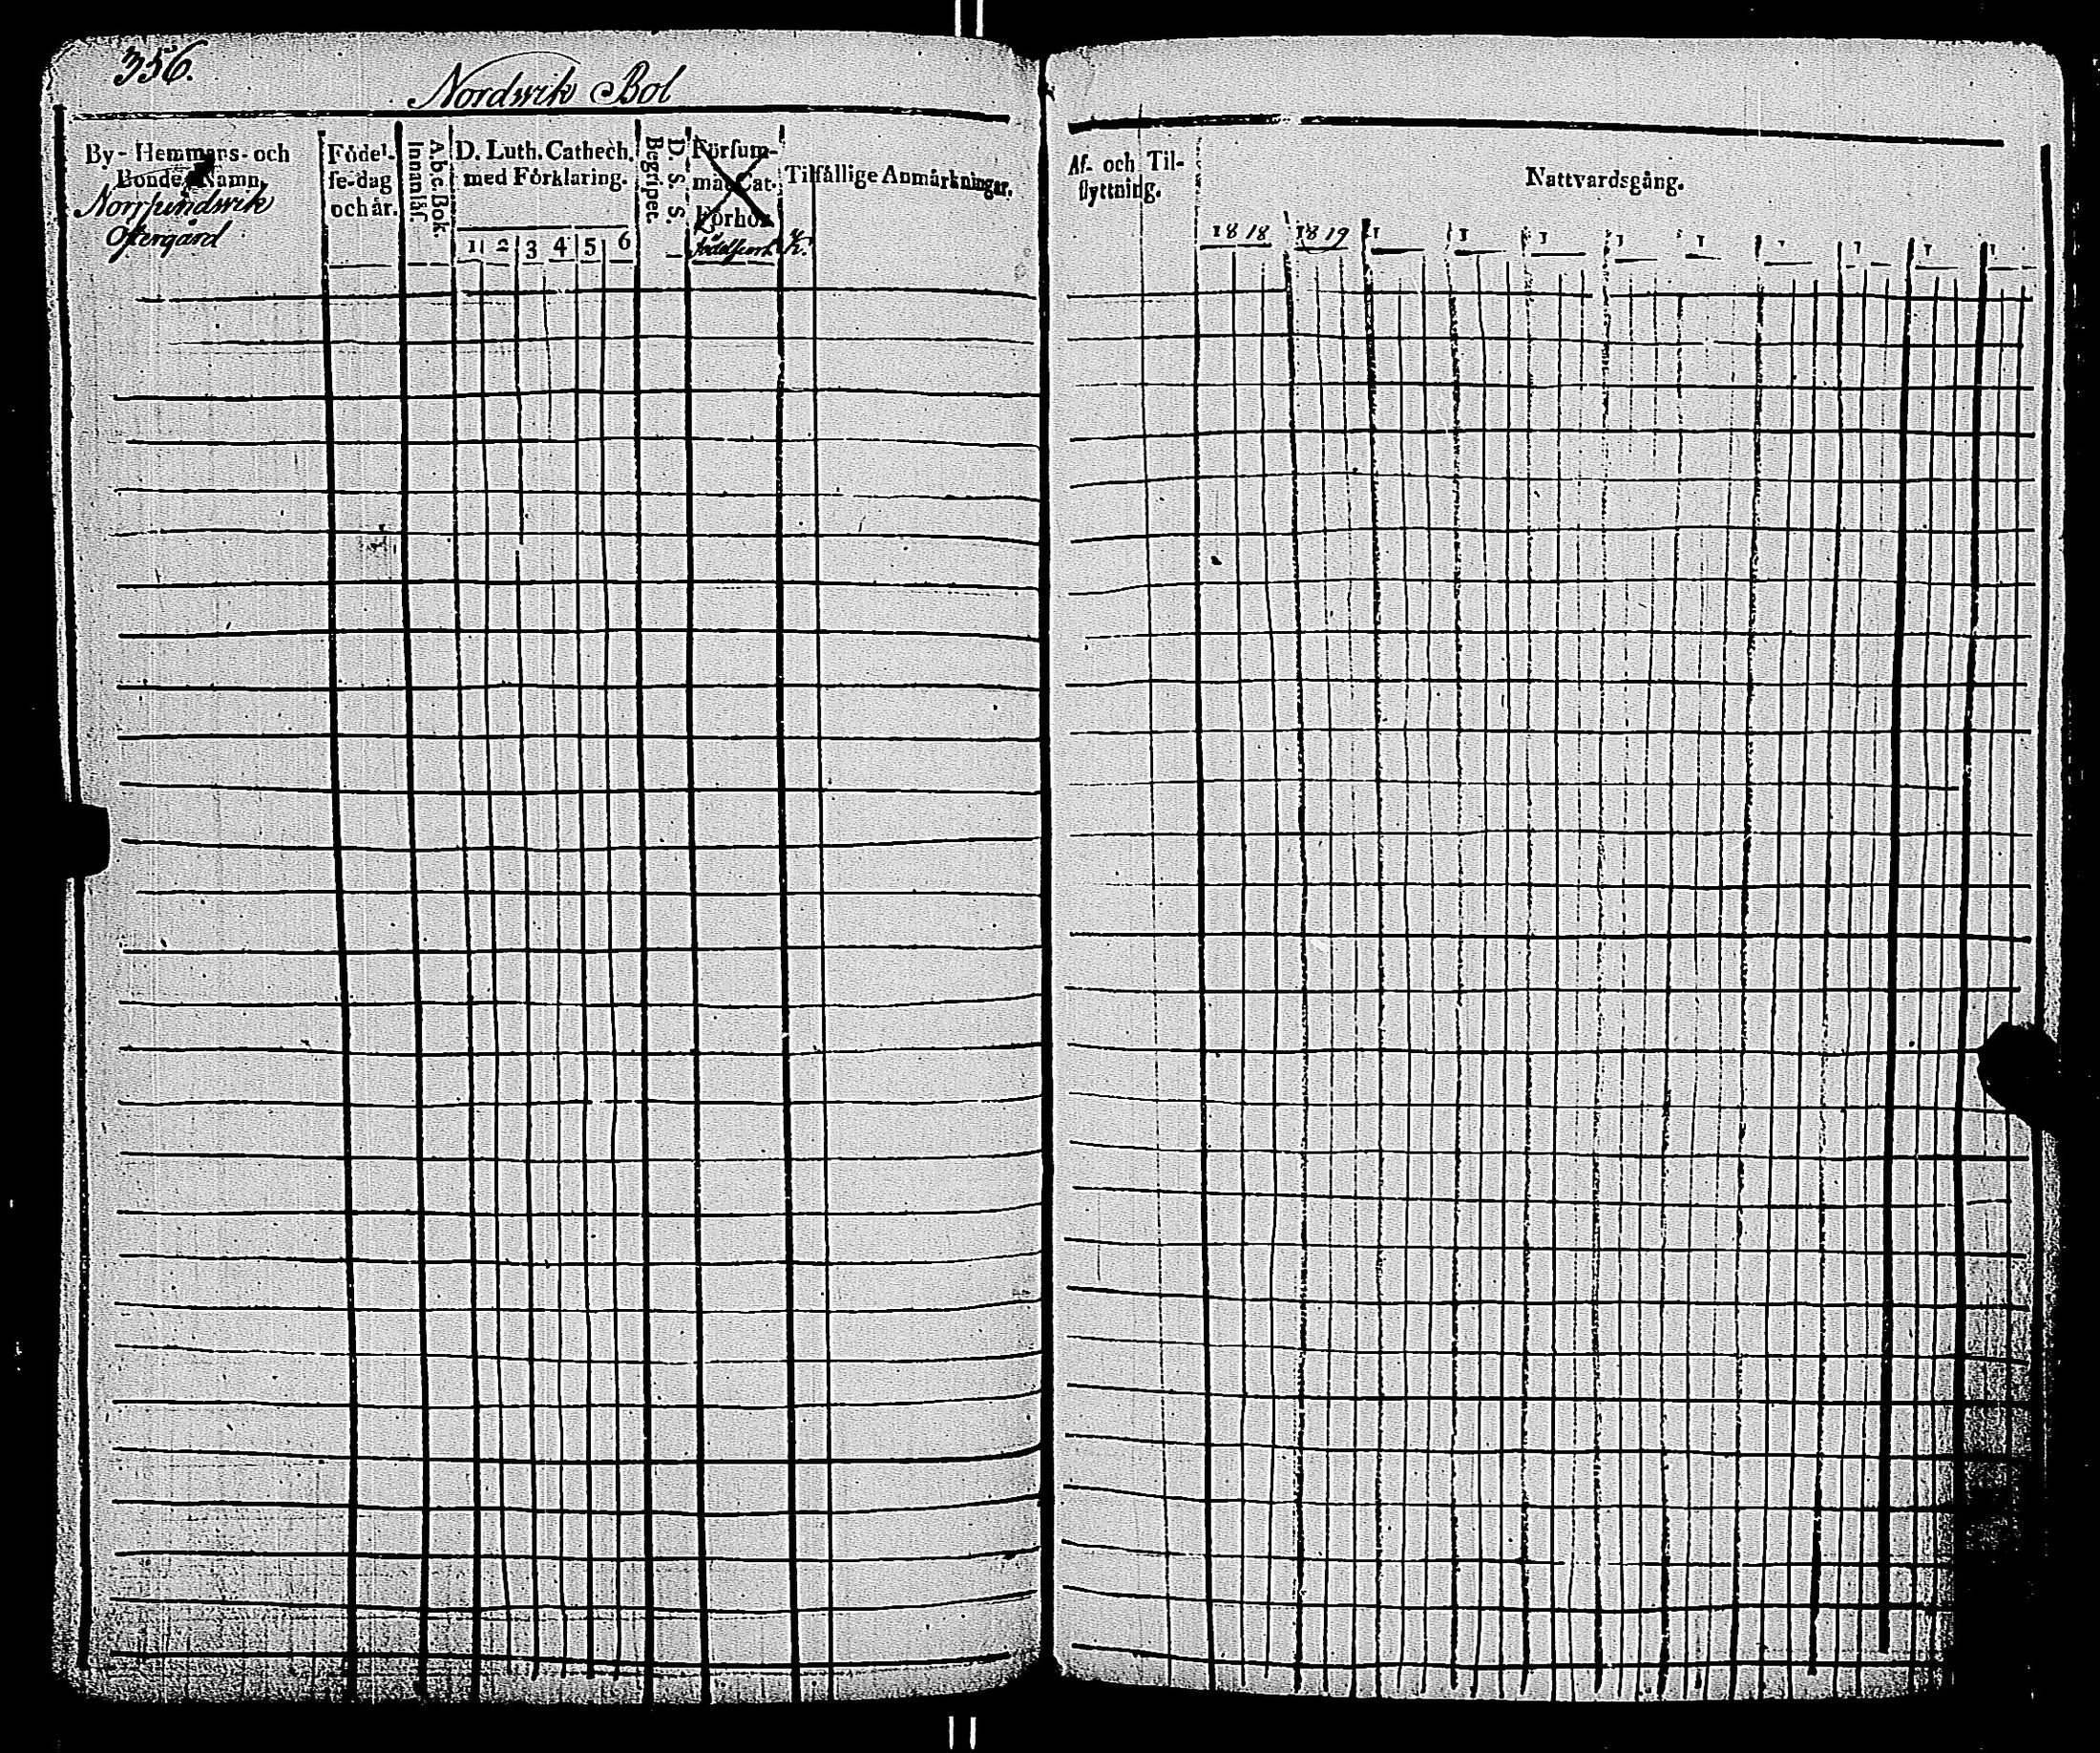 356.
Nordwik Bol
By- Hemmans- och
Bonde Namn.
Norrsundwik
Östergård
Födel-
se-dag
och år.
A. b. c. Bok.
Innanläs.
D. Luth. Cathech.
med Förklaring.
1 2 3 4 5 6
D. S. S.
Begripet.
Försum-
mat Cat.
Förhör
födelseort
K.
Tilfällige Anmärkningar.
Af- och Til-
flyttning.
Nattvardsgång.
1818 1819 1 1 1 1 1 1 1 1 1